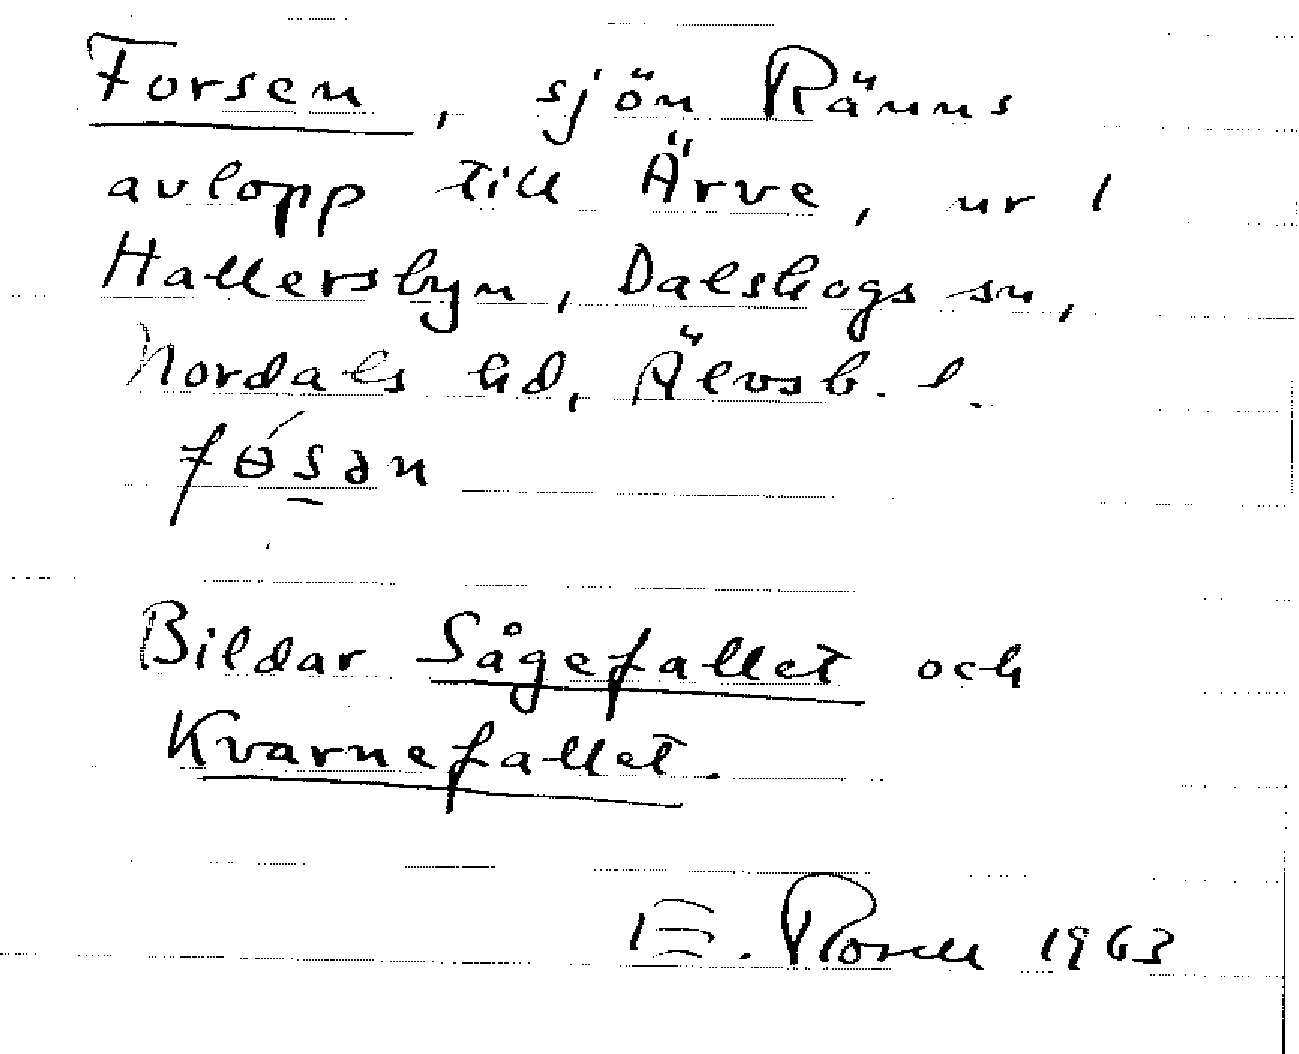 Forsen, sjön Ränns
avlopp till Ärve, ur 1
Hallersbyn, Dalskogs sn,
Nordals hd, Älvsb. l.
fɵ́sən
Bildar Sågefallet och
Kvarnefallet.
E. Rosell 1963